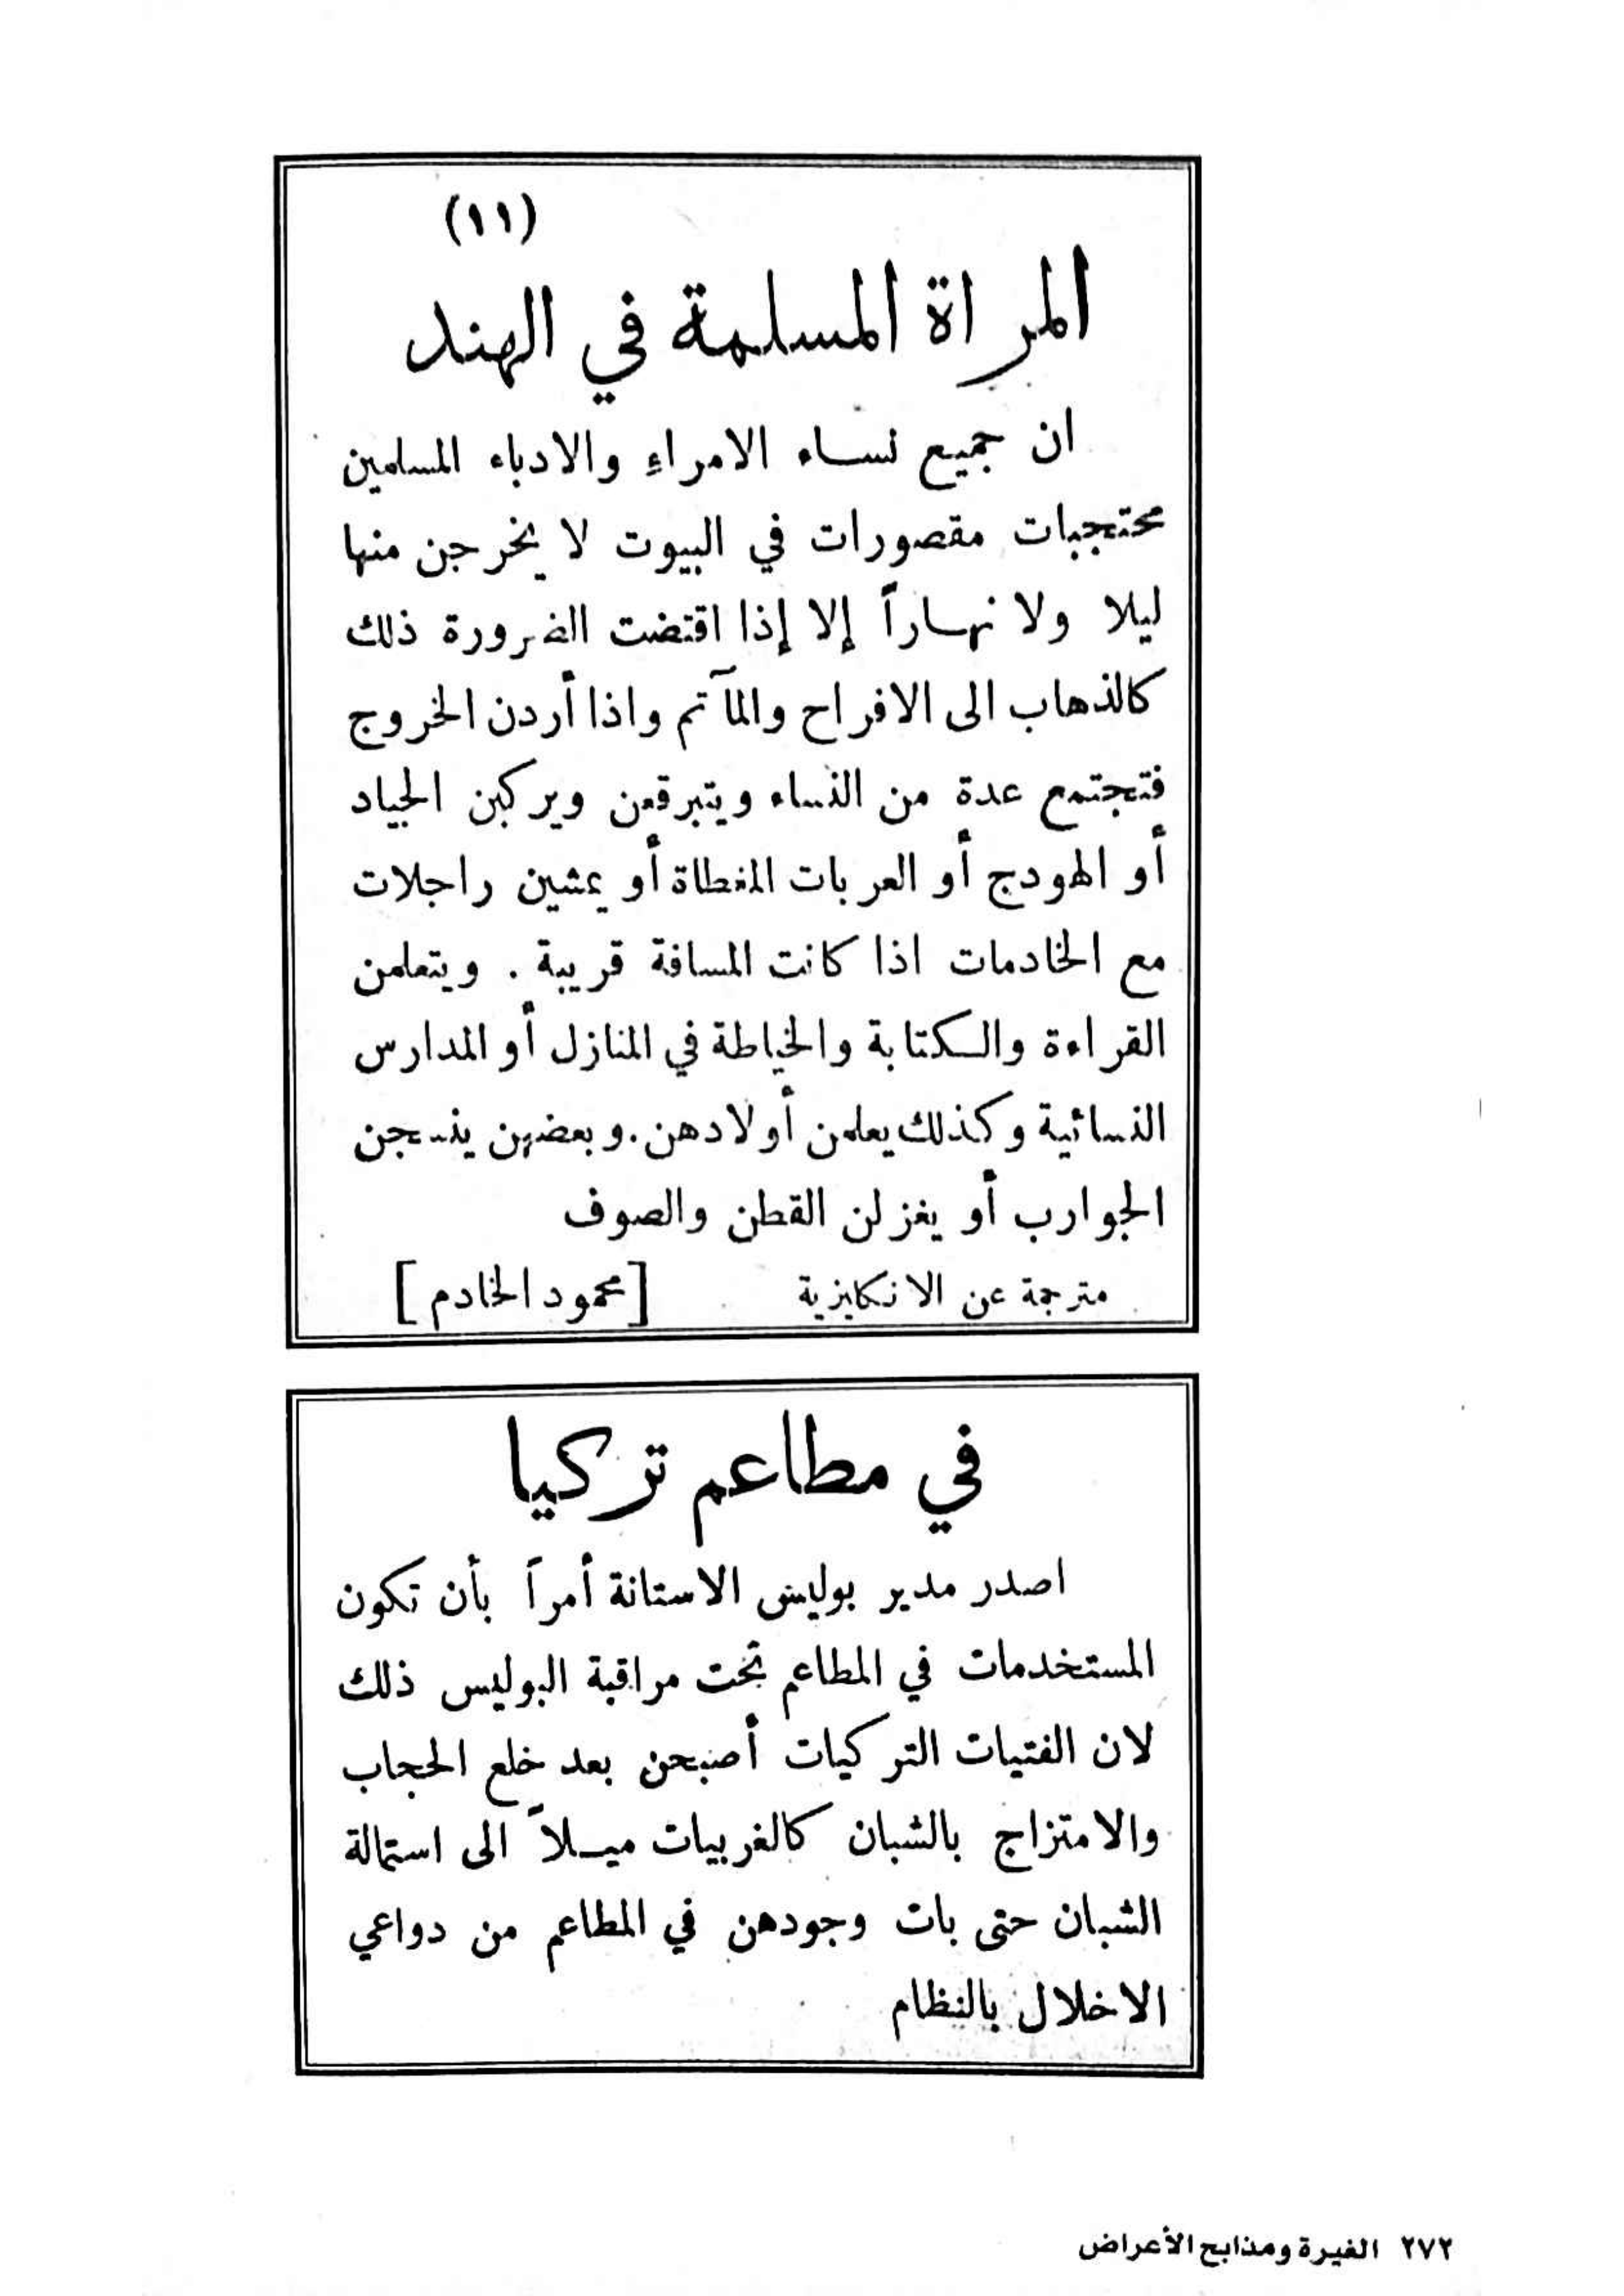 (١١)
المراة المسلمة في الهند
ان جميع نساء الامراءِ والادباء المسلمين
محتجبات مقصورات في البيوت لا يخرجن منها
ليلا ولا نهاراً إلا إذا اقتضت الضرورة ذلك
كالذهاب الى الافراح والمآتم واذا أردن الخروج
فتجتمع عدة من النساء ويتبرقعن ويركبن الجياد
أو الهودج أو العربات المغطاة أو يمشين راجلات
مع الخادمات اذا كانت المسافة قريبة . ويتعلمن
القراءة والكتابة والخياطة في المنازل أو المدارس
النسائية وكذلك يعلمن أولادهن . وبعضهن ينسجن
الجوارب أو يغزلن القطن والصوف
مترجمة عن الانكليزية [محمود الخادم]
في مطاعم تركيا
اصدر مدير بوليس الاستانة أمراً بأن تكون
المستخدمات في المطاعم تحت مراقبة البوليس ذلك
لان الفتيات التركيات أصبحن بعد خلع الحجاب
والامتزاج بالشبان كالغربيات ميلاً الى استمالة
الشبان حتى بات وجودهن في المطاعم من دواعي
الاخلال بالنظام
٢٧٢ الغيرة ومذابح الأعراض